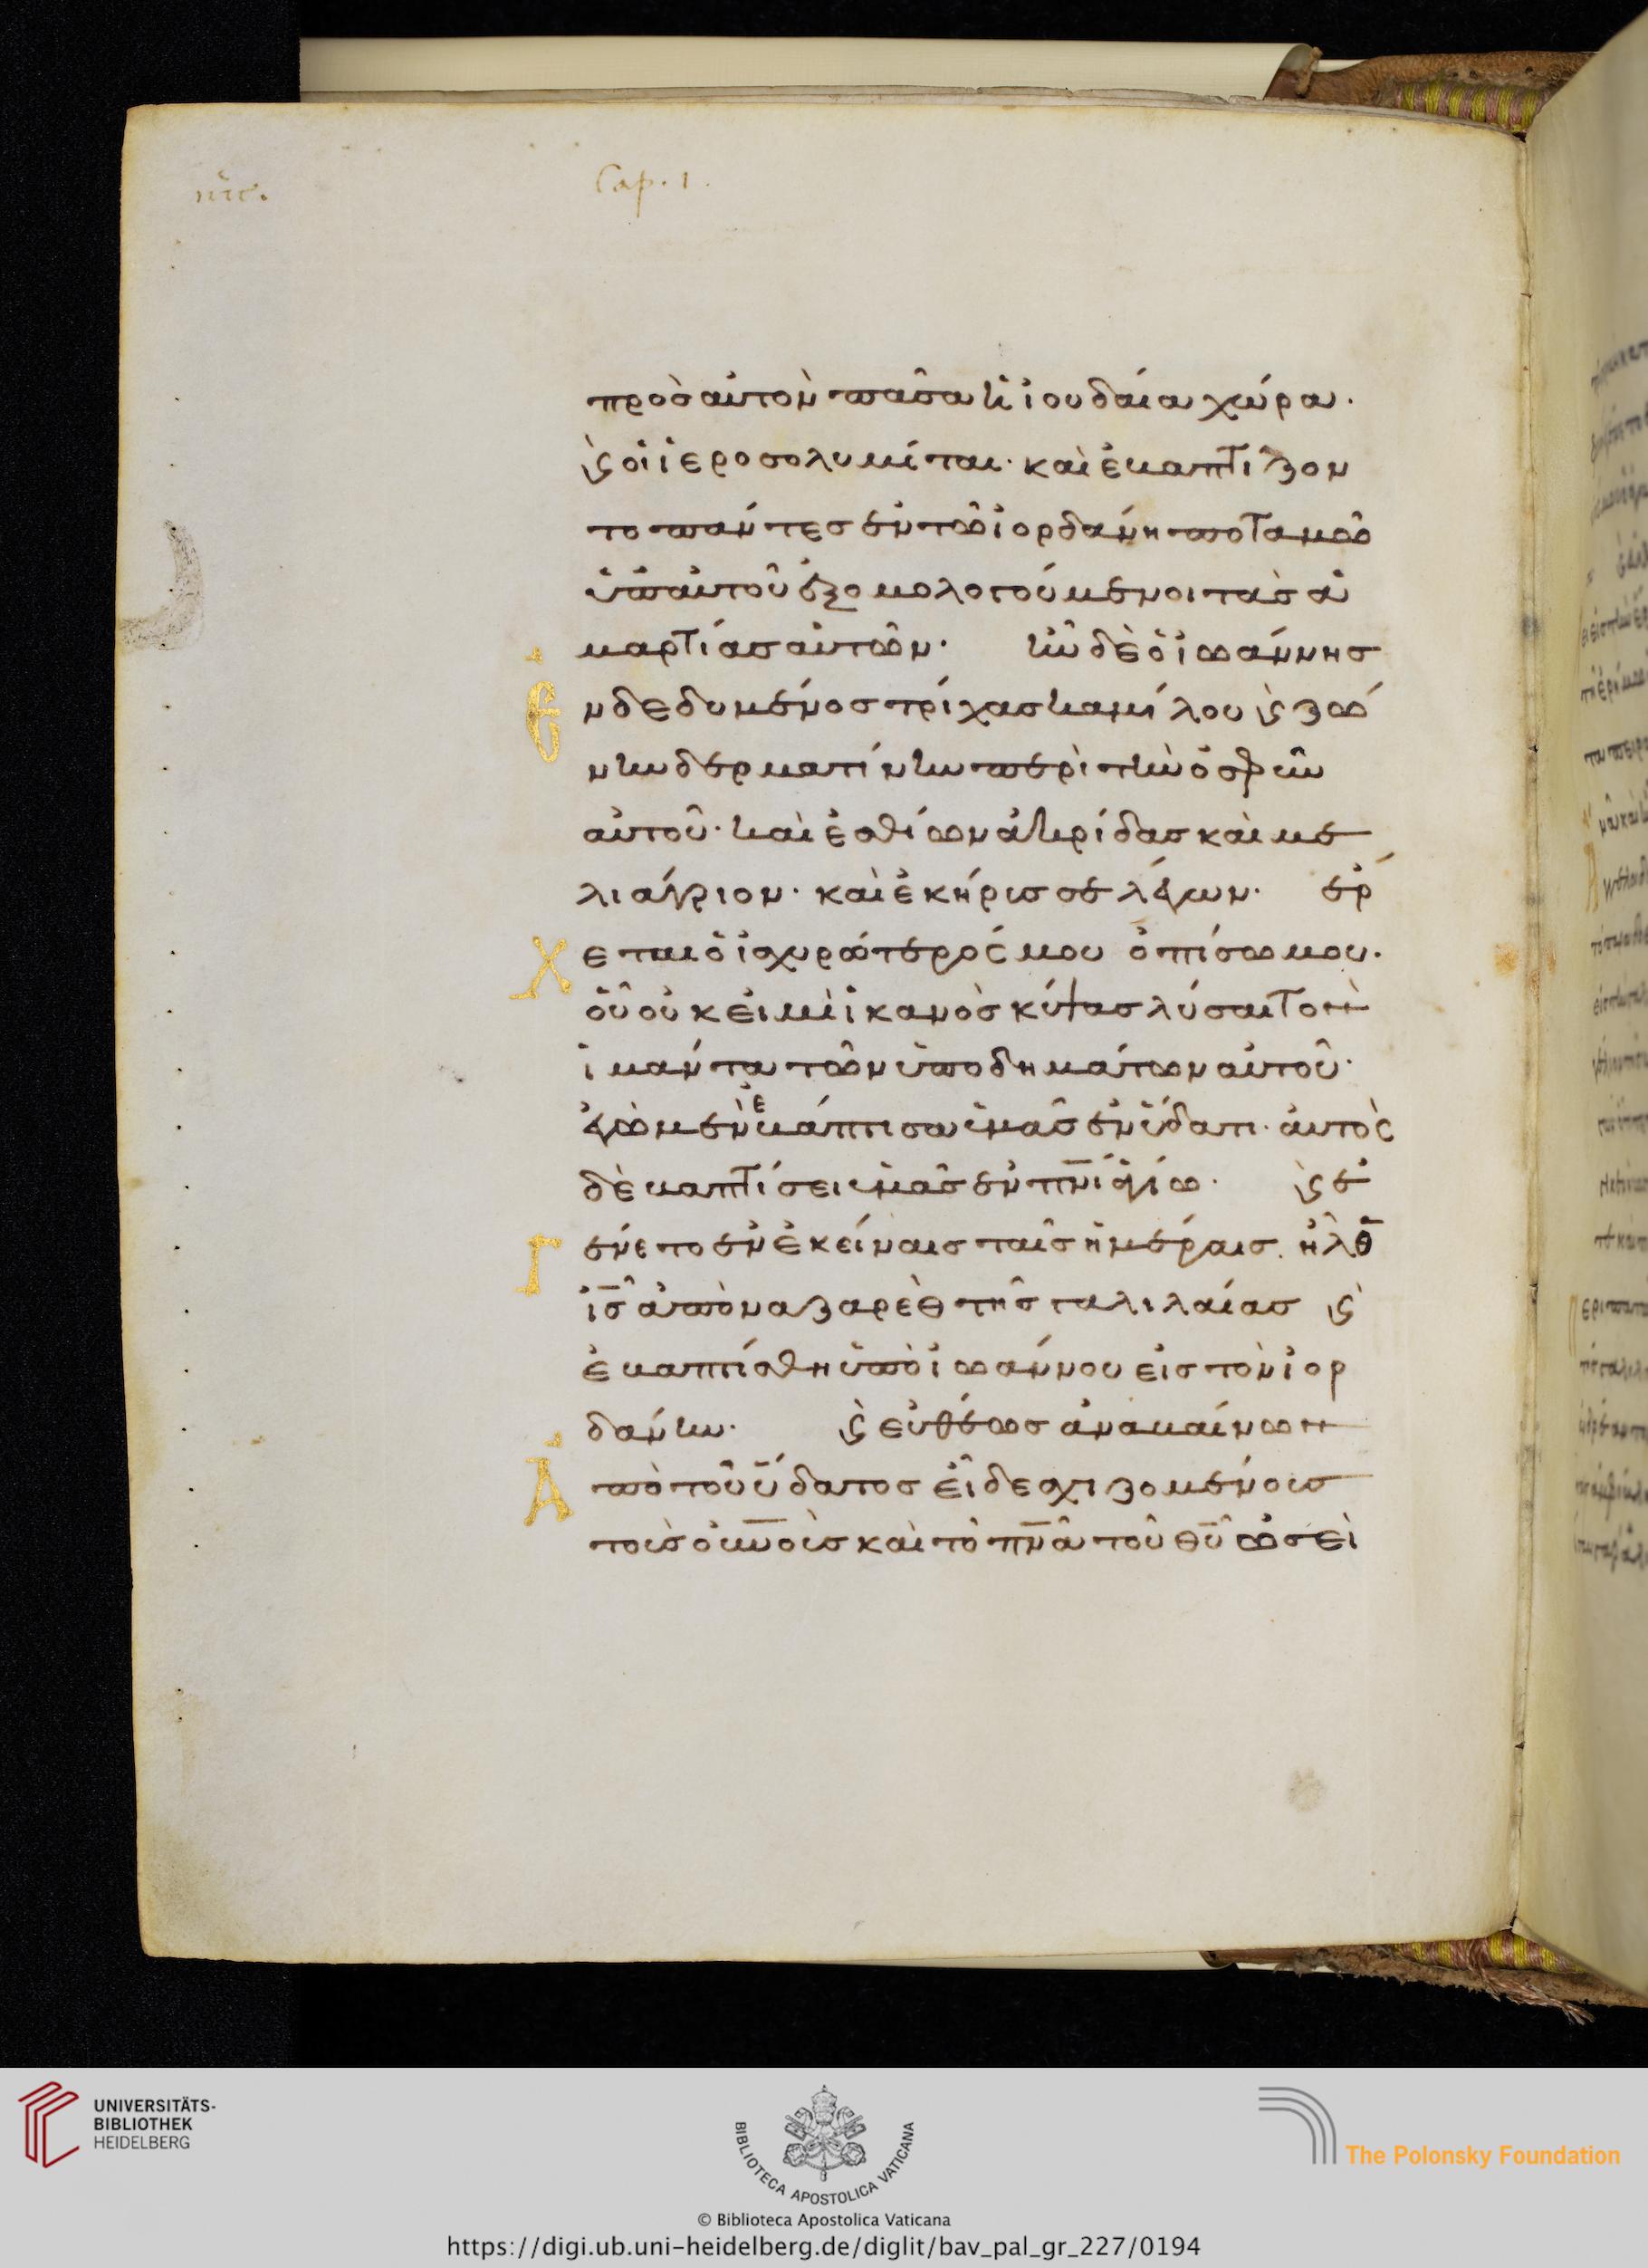 mrc.
Cap. 1.
πρὸσ αὐτὸν πᾶσα ἡ ἰουδαία χώρα.
ϛ̀ οἱ ἱεροσολυμίται· καὶ ἐβαπτίζον
το πάντεσ ἐν τῶ ἰορδάνη ποταμῶ
ὑπ' αὐτοῦ ἐξομολογούμενοι τὰσ ἁ
μαρτίασ αὐτῶν· ἦν δὲ ὁ ἰωάννησ
Ενδεδυμένοσ τρίχασ καμίλου ϛ̀ ζώ
νην δερματίνην περὶ τὴν ὀσφῦν
αὐτοῦ· καὶ ἐσθίων ἀκρίδασ καὶ μέ
λι ἄγριον· καὶ ἐκήρισσε λέγων· έρ
Χεται ὁ ἰσχυρώτερός μου ὀπίσω μου.
οὗ οὐκ εἰμὶ ἱκανὸσ κύψασ λύσαι τὸν
ἱμάντα τῶν ὑποδημάτων αὐτοῦ·
ἐγὼ μὲν ἐβάπτισα ὑμᾶσ ἐν ὕδατι· αὐτὸς
δὲ βαπτίσει ὑμᾶσ ἐν πν̅ι ἁγίω· ϛ̀ ἐ
Γένετο ἐν ἐκείναισ ταῖσ ἡμέραισ. ἦλθ
ἰ̅σ̅ ἀπὸ ναζαρὲθ τῆσ γαλιλαίασ ϛ̀
ἐβαπτίσθη ὑπὸ ἰωάννου εἰσ τὸν ἰορ
δάνην· ϛ̀ εὐθέωσ ἀναβαίνων
Ἀπὸ τοῦ ὕδατοσ εἶδε σχιζομένουσ
τοὺσ οὐ̅ν̅οὺσ καὶ τὸ πν̅α τοῦ θ̅υ̅ ὡσεὶ
UNIVERSITÄTS-
BIBLIOTHEK
HEIDELBERG
BIBLIOTECA APOSTOLICA VATICANA
The Polonsky Foundation
© Biblioteca Apostolica Vaticana
https://digi.ub.uni-heidelberg.de/diglit/bav_pal_gr_227/0194